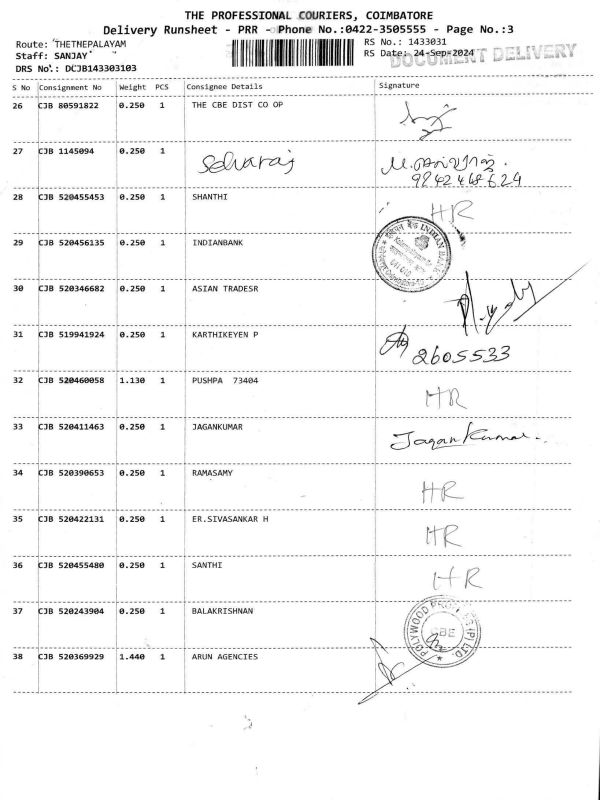 THE PROFESSIONAL COURIERS, COIMBATORE
Delivery Runsheet - PRR - Phone No.:0422-3505555 - Page No.:3
Route: THETNEPALAYAM
RS No.: 1433031
Staff: SANJAY
RS Date: 24-Sep-2024
DOCUMENT DELIVERY
DRS No.: DCJB143303103
S No Consignment No Weight PCS Consignee Details Signature
26 CJB 80591822 0.250 1 THE CBE DIST CO OP
27 CJB 1145094 0.250 1 Selvaraj
9842468624
28 CJB 520455453 0.250 1 SHANTHI HR
29 CJB 520456135 0.250 1 INDIANBANK INDIAN BANK
30 CJB 520346682 0.250 1 ASIAN TRADESR
31 CJB 519941924 0.250 1 KARTHIKEYEN P 2605533
32 CJB 520460058 1.130 1 PUSHPA 73404 HR
33 CJB 520411463 0.250 1 JAGANKUMAR Jagan Kumar
34 CJB 520390653 0.250 1 RAMASAMY HR
35 CJB 520422131 0.250 1 ER.SIVASANKAR H HR
36 CJB 520455480 0.250 1 SANTHI HR
37 CJB 520243904 0.250 1 BALAKRISHNAN POLYWOOD (P) LTD. CBE
38 CJB 520369929 1.440 1 ARUN AGENCIES